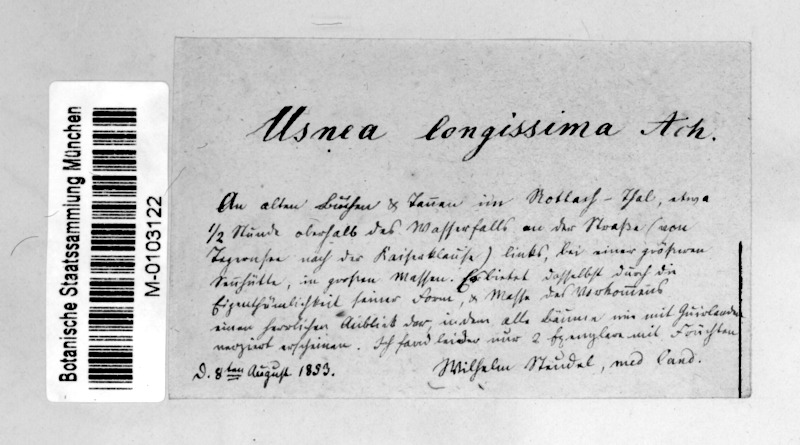 Botanische Staatssammlung München
M-0103122
Usnea longissima Ach.
An alten Buchen & Tannen im Rottach-Thal, etwa
1/2 Stunde oberhalb des Wasserfalls an der Straße (von
Tegernsee nach der Kaiserklause) links, bei einer größeren
Sennhütte, in großen Massen. Es bietet daselbst durch die
Eigenthümlichkeit seiner Form, & Masse des Vorkommens
einen herrlichen Anblick dar, indem alle Bäume wie mit Guirlanden
verziert erscheinen. Ich fand leider nur 2 Exemplare mit Früchten
D. 8ten August 1853.
Wilhelm Steudel, med cand.